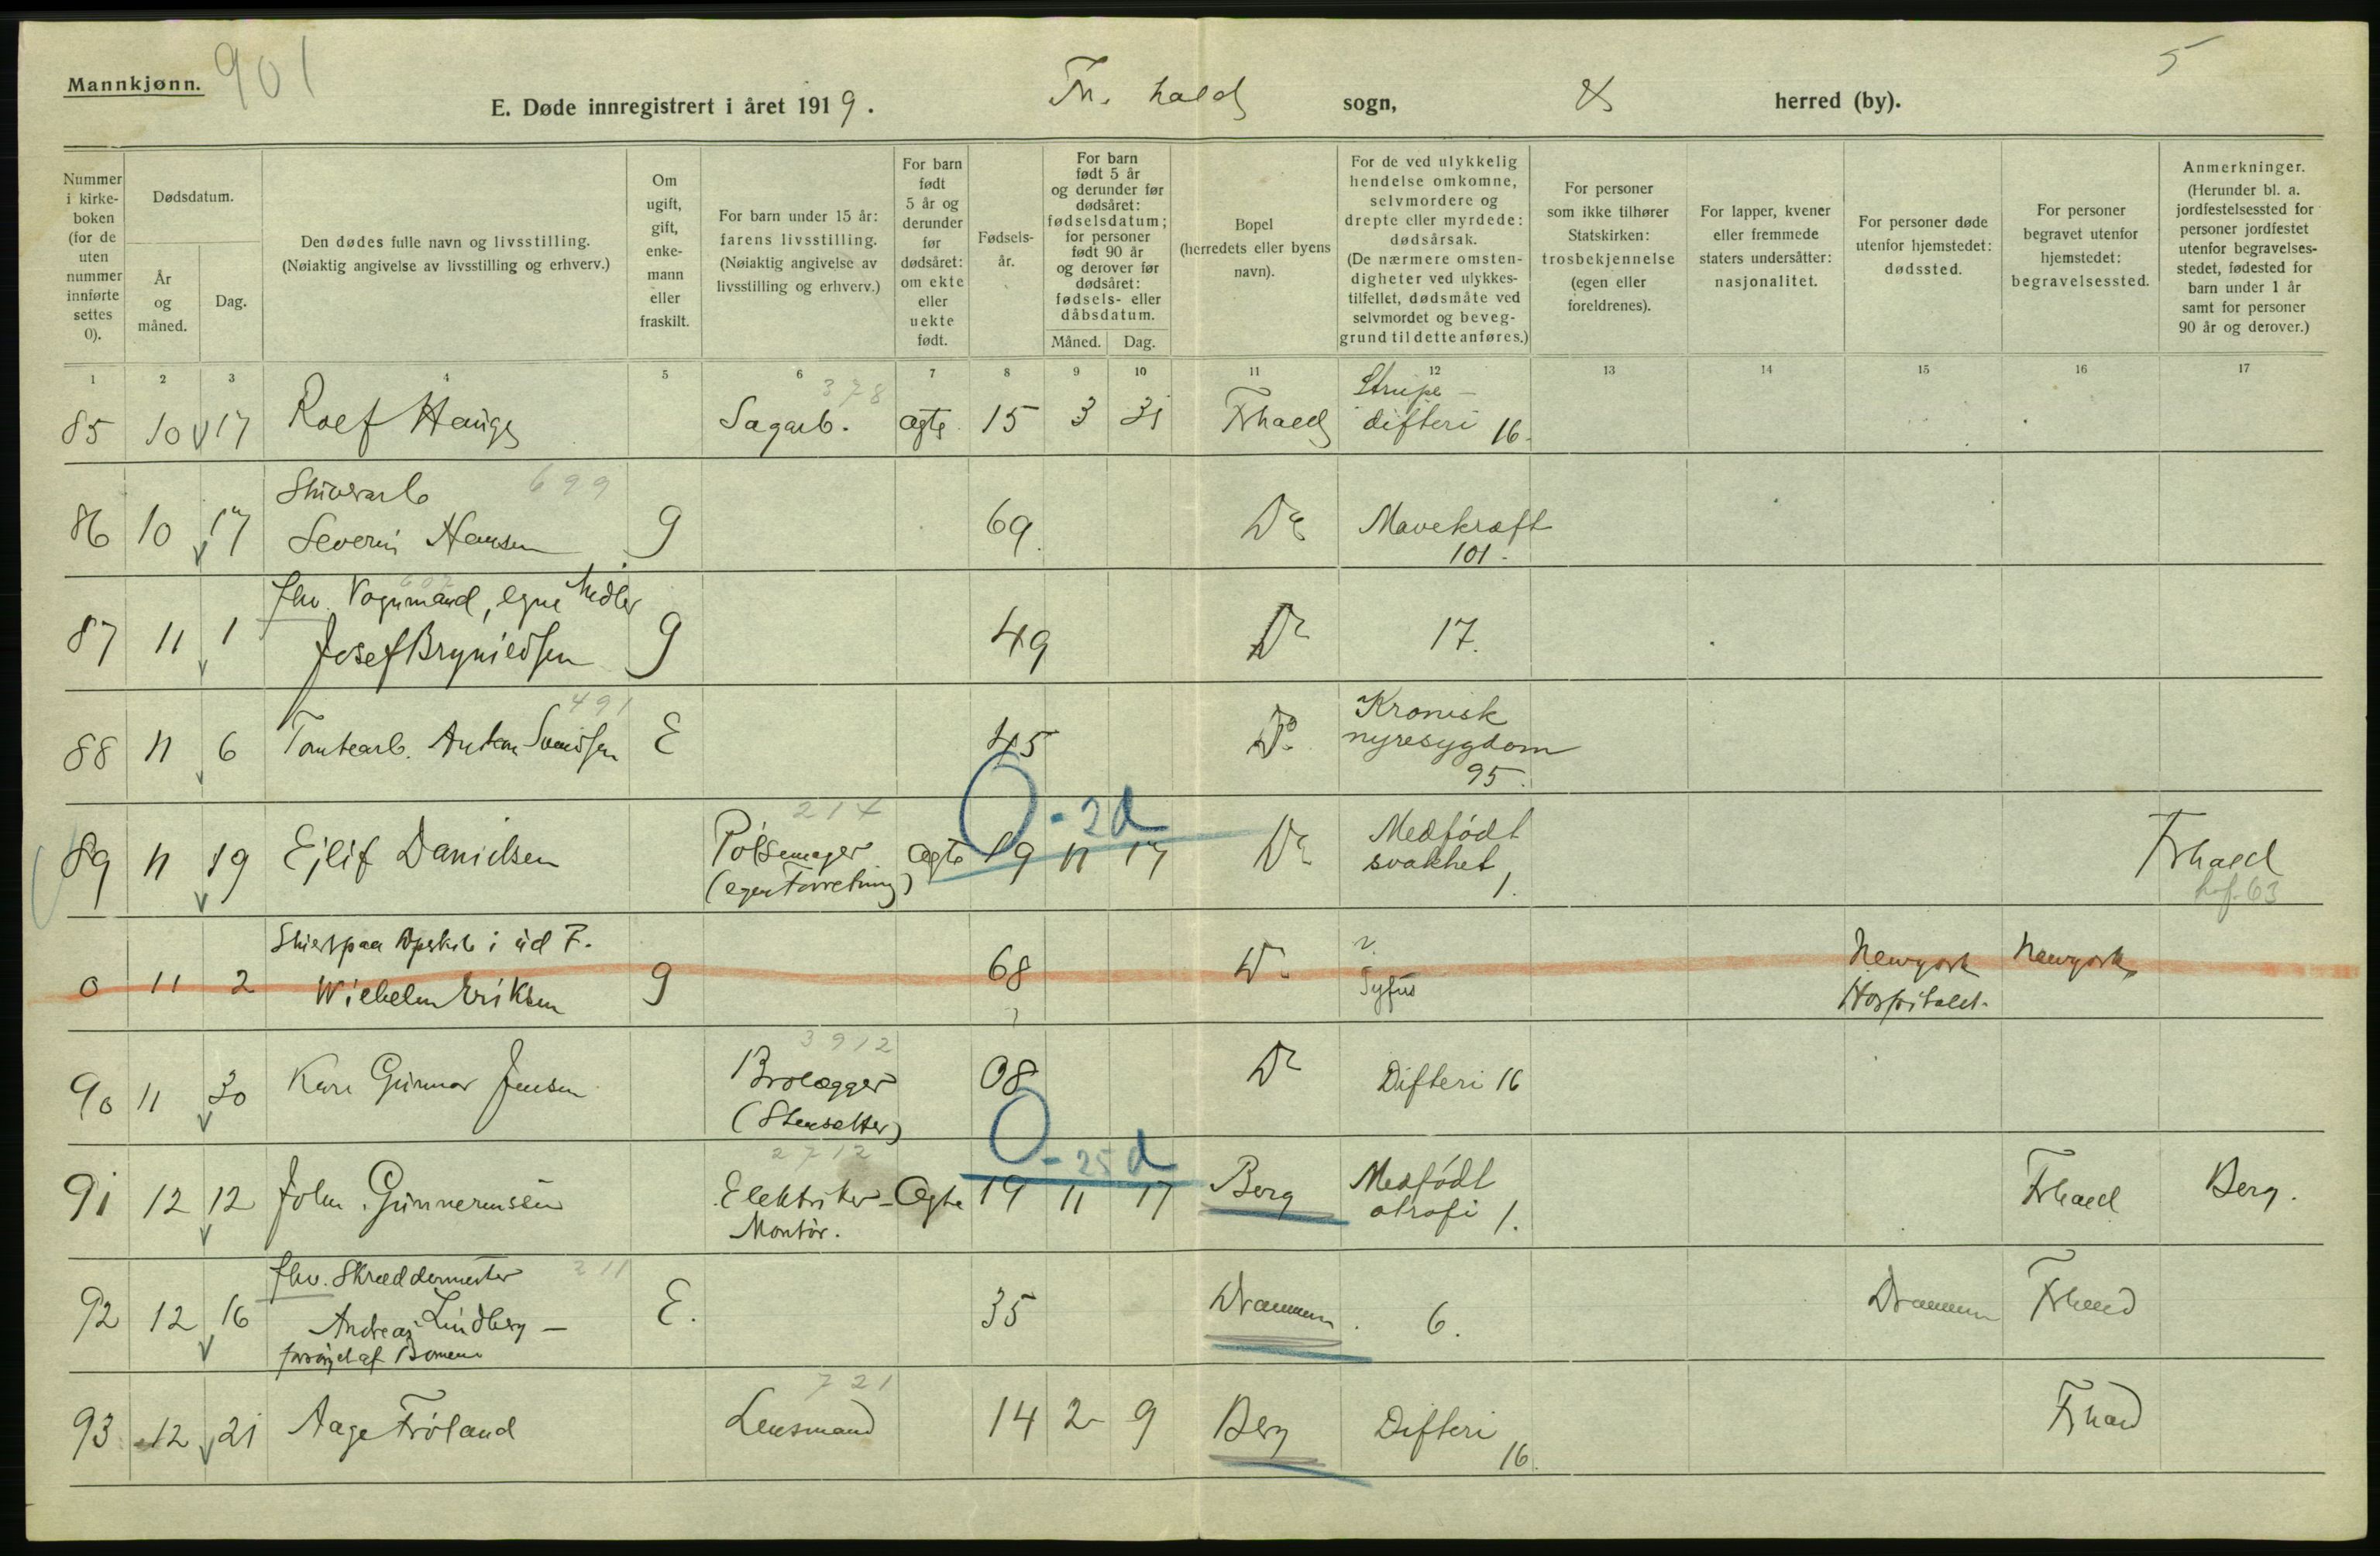 Mannkjønn.
901
5
E. Døde innregistrert i året 1919.
Fr. hald sogn, herred (by).
Nummer i kirkeboken (for de uten nummer innførte settes 0).
Dødsdatum.
År og måned.
Dag.
Den dødes fulle navn og livsstilling.
(Nøiaktig angivelse av livsstilling og erhverv.)
Om ugift, gift, enkemann eller fraskilt.
For barn under 15 år: farens livsstilling.
(Nøiaktig angivelse av livsstilling og erhverv.)
For barn født 5 år og derunder før dødsåret: om ekte eller uekte født.
Fødselsår.
For barn født 5 år og derunder før dødsåret: fødselsdatum; for personer født 90 år og derover før dødsåret: fødsels- eller dåbsdatum.
Måned. Dag.
Bopel (herredets eller byens navn).
For de ved ulykkelig hendelse omkomne, selvmordere og drepte eller myrdede: dødsårsak.
(De nærmere omstendigheter ved ulykkestilfellet, dødsmåte ved selvmordet og beveggrund til dette anføres.)
For personer som ikke tilhører Statskirken: trosbekjennelse (egen eller foreldrenes).
For lapper, kvener eller fremmede staters undersåtter: nasjonalitet.
For personer døde utenfor hjemstedet: dødssted.
For personer begravet utenfor hjemstedet: begravelsessted.
Anmerkninger.
(Herunder bl. a. jordfestelsessted for personer jordfestet utenfor begravelsesstedet, fødested for barn under 1 år samt for personer 90 år og derover.)
1 2 3 4 5 6 7 8 9 10 11 12 13 14 15 16 17
378
Strupe-
85 10 17 Rolf Hauge Sagarb. ægte 15 3 31 Frhald difteri 16.
699
86 10 17 Severin Hansen g 69 Do Mavekræft
101.
607
fhv. Vognmand, egne Midler
87 11 1 Josef Bryniedsen g 49 Do 17.
491
88 11 6 Tomtearb. Anton Svendsen E 45 Do Kronisk
nyresygdom
95.
214
0 - 2d
89 11 19 Ejlif Danielsen Pølsemager ægte 19 11 17 Do Medfødt
svakhet Frhald
(egen Forretning) 1.
63
0 11 2 Wilhelm Eriksen g 68 Do Tyfus Newyork Newyork
Hospitalet.
3912
90 11 30 Karl Gunnar Jensen Brolægger 08 Do Difteri 16
(Stensetter)
2712
0 - 25 d
91 12 12 John Gunnerussen Elektriker- Ægte 19 11 17 Berg Medfødt Frhald Berg.
Montør. atrofi 1.
211
fhv. Skræddermester
92 12 16 Andreas Lindberg - E. 35 Drammen 6. Drammen Frhald
forsørget af
721
93 12 21 Aage Frøland Lensmand 14 2 9 Berg Difteri Frhald
16.